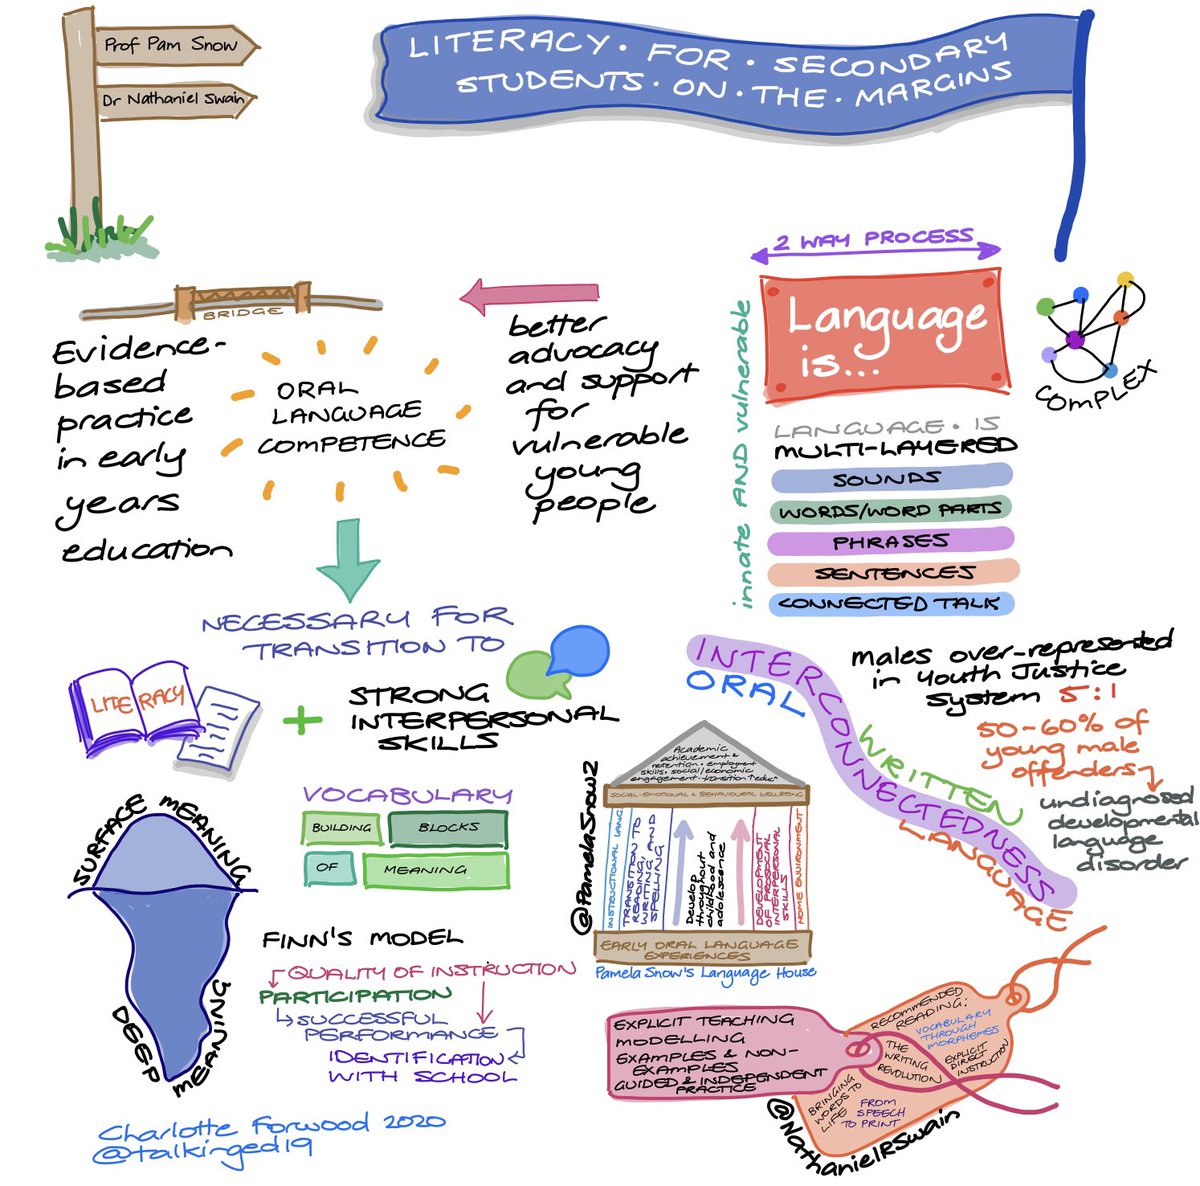 Prof Pam Snow
Dr Nathaniel Swain
LITERACY • FOR • SECONDARY
STUDENTS • ON • THE • MARGINS
BRIDGE
Evidence-
based
practice
in early
years
education
ORAL
LANGUAGE
COMPETENCE
better
advocacy
and support
for
vulnerable
young
people
2 WAY PROCESS
innate AND vulnerable
Language
is...
COMPLEX
LANGUAGE • IS
MULTI-LAYERED
SOUNDS
WORDS/WORD PARTS
PHRASES
SENTENCES
CONNECTED TALK
NECESSARY FOR
TRANSITION TO
LITERACY
+
STRONG
INTERPERSONAL
SKILLS
INTERCONNECTEDNESS
ORAL
WRITTEN
LANGUAGE
males over-represented
in Youth Justice
System 5:1
50-60% of
young male
offenders
undiagnosed
developmental
language
disorder
SURFACE MEANING
DEEP
MEANING
VOCABULARY
BUILDING
BLOCKS
OF
MEANING
FINN'S MODEL
QUALITY OF INSTRUCTION
PARTICIPATION
SUCCESSFUL
PERFORMANCE
IDENTIFICATION
WITH SCHOOL
@PamelaSnow2
Academic
achievement &
retention • employment
skills • social/economic
engagement • transition "educ"
SOCIAL-EMOTIONAL & BEHAVIOURAL WELLBEING
INSTRUCTIONAL LANG.
TRANSITION TO
READING,
WRITING, AND
SPELLING
Develop
throughout
childhood and
adolescence
DEVELOPMENT
OF PROSOCIAL
INTERPERSONAL
SKILLS
HOME ENVIRONMENT
EARLY ORAL LANGUAGE
EXPERIENCES
Pamela Snow's Language House
EXPLICIT TEACHING
MODELLING
EXAMPLES & NON-
EXAMPLES
GUIDED & INDEPENDENT
PRACTICE
RECOMMENDED
READING:
VOCABULARY
THROUGH
MORPHEMES
THE
WRITING
REVOLUTION
EXPLICIT
DIRECT
INSTRUCTION
BRINGING
WORDS TO
LIFE
FROM
SPEECH
TO PRINT
@NathanielRSwain
Charlotte Forwood 2020
@talkinged19